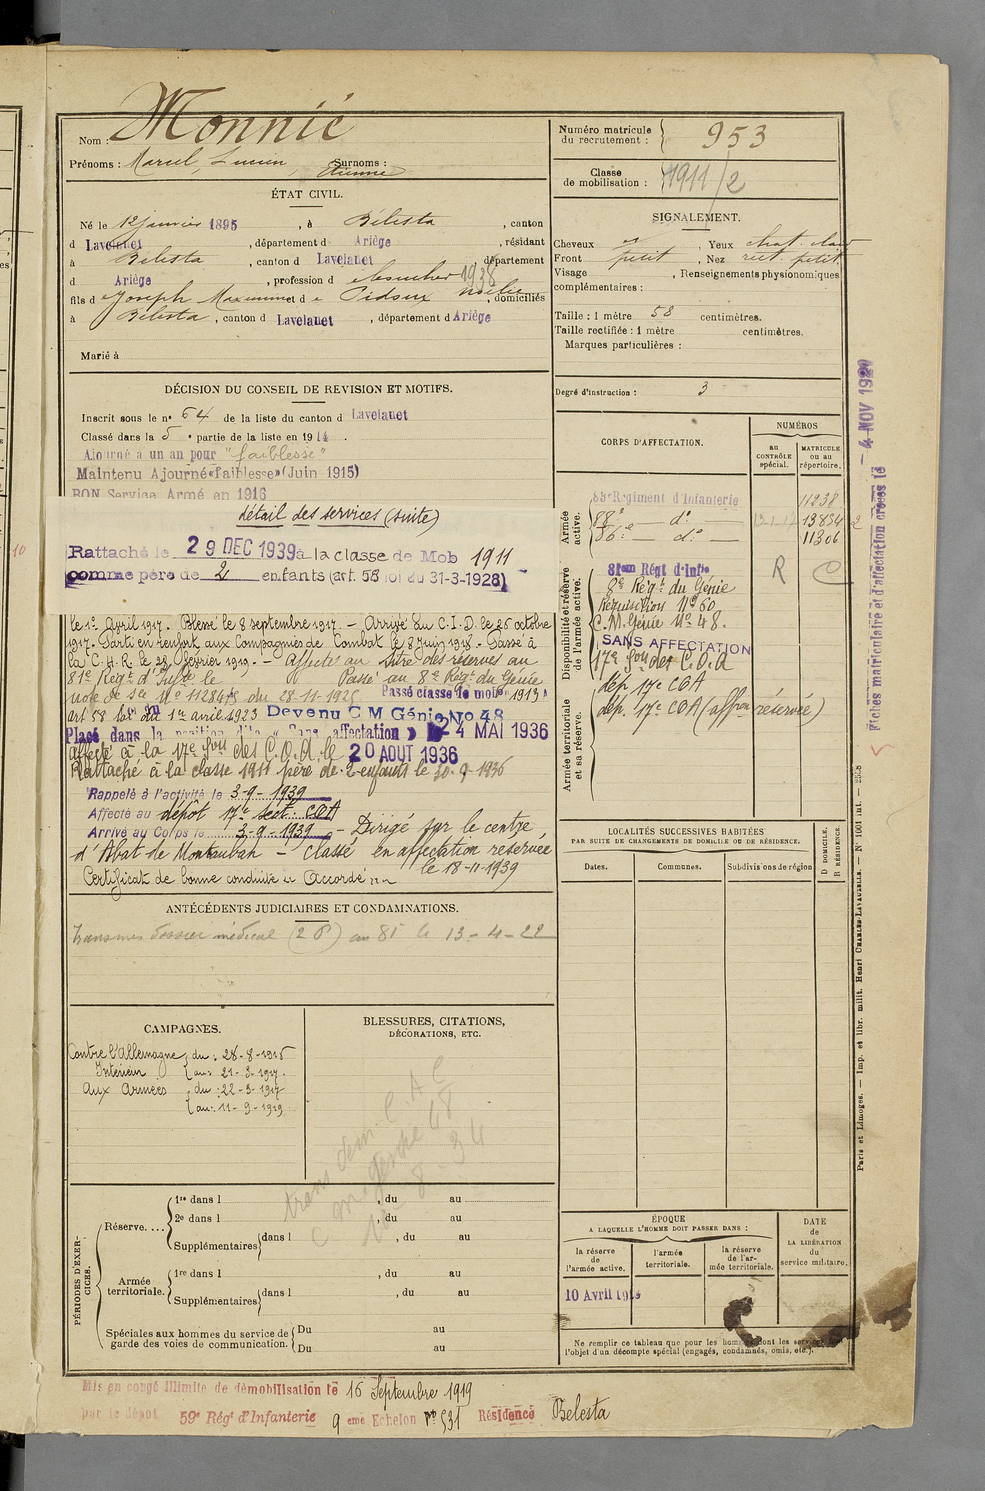 Nom : Monnié
Prénoms : Marcel, Lucien, Etienne Surnoms :
Numéro matricule du recrutement : 953
Classe de mobilisation : 1911/2
ÉTAT CIVIL.
Né le 12 janvier 1895, à Bélesta, canton
d Lavelanet, département d Ariège, résidant
à Bélesta, canton d Lavelanet, département
d Ariège, profession d
fils d Joseph et d domiciliés
à Bélesta, canton d Lavelanet, département d Ariège
Marié à
SIGNALEMENT.
Cheveux Yeux chat. clair
Front petit, Nez rect. petit
Visage , Renseignements physionomiques
complémentaires :
Taille : 1 mètre 58 centimètres.
Taille rectifiée : 1 mètre centimètres.
Marques particulières :
Degré d'instruction : 3
DÉCISION DU CONSEIL DE REVISION ET MOTIFS.
Inscrit sous le n° 64 de la liste du canton d Lavelanet
Classé dans la 5e partie de la liste en 1914.
Ajourné à un an pour "faiblesse"
Maintenu Ajourné «faiblesse» (Juin 1915)
BON Service Armé en 1916
détail des services (suite)
Rattaché le 29 DEC 1939 à la classe de Mob 1911
comme père de 2 enfants (art. 58 loi du 31-3-1928)
le 1er Avril 1917. Blessé le 8 septembre 1917. — Arrivé au C.I.D. le 26 octobre
1917. Parti en renfort aux Compagnies de Combat le 8 Juin 1918. Passé à
la C.H.R. le 28 février 1919. — Affecté au titre des réserves au
81e Régt d'Inftie le Passé au 8e Régt du Génie
note de Sce No 11284 du 28-11-1925 Passé classe de mobon 1913
art 58 loi du 1er avril 1923 Devenu C M Génie No 48
Placé dans la position dite « Sans affectation » 24 MAI 1936
affecté à la 17e Son des C.O.A. le 20 AOUT 1936
Rattaché à la classe 1911 père de 2 enfants le 30-9-1936
Rappelé à l'activité le 3-9-1939
Affecté au dépôt 17e sect. COA
Arrivé au Corps le 3-9-1939 — Dirigé sur le centre
d'Abat de Montauban — classé en affectation réservée
le 18-11-1939
Certificat de bonne conduite Accordé
ANTÉCÉDENTS JUDICIAIRES ET CONDAMNATIONS.
Transmis dossier médical (2 P) au 81e le 13-4-22
CAMPAGNES.
Contre l'Allemagne
Intérieur
du : 28-8-1916
au : 21-3-1917.
Aux Armées
du : 22-3-1917
au : 11-9-1919
BLESSURES, CITATIONS,
DÉCORATIONS, ETC.
PÉRIODES D'EXERCICES.
Réserve....
1re dans l , du au
2e dans l , du au
Supplémentaires dans l , du au
Armée territoriale.
1re dans l , du au
Supplémentaires dans l , du au
Spéciales aux hommes du service de garde des voies de communication.
Du au
Du au
CORPS D'AFFECTATION.
NUMÉROS
au CONTRÔLE spécial.
MATRICULE ou au répertoire.
Armée active.
Régiment d'Infanterie 11238
88e — do — 13834
86e — do — 11306
Disponibilité et réserve de l'armée active.
81em Régt d'Inftie R C
8e Régt du Génie
Réquisition No 60
C.M. Génie No 48.
SANS AFFECTATION
17e Son des C.O.A
dép 17e COA
dép. 17e COA (affon réservée)
Armée territoriale et sa réserve.
LOCALITÉS SUCCESSIVES HABITÉES
PAR SUITE DE CHANGEMENTS DE DOMICILE OU DE RÉSIDENCE.
Dates. Communes. Subdivisions de région
D DOMICILE. R RÉSIDENCE.
ÉPOQUE
A LAQUELLE L'HOMME DOIT PASSER DANS :
la réserve de l'armée active.
l'armée territoriale.
la réserve de l'armée territoriale.
DATE de LA LIBÉRATION du service militaire.
10 Avril
Ne remplir ce tableau que pour les hommes dont les services font
l'objet d'un décompte spécial (engagés, condamnés, omis, etc.).
Fiches matriculaire et d'affectation créées le — 4 NOV 1920
Paris et Limoges. — Imp. et libr. milit. Henri CHARLES-LAVAUZELLE. — N° 1001 int.
Mis en congé illimité de démobilisation le 16 Septembre 1919
par le dépôt 59e Régt d'Infanterie 9eme Echelon No 531 Résidence Belesta